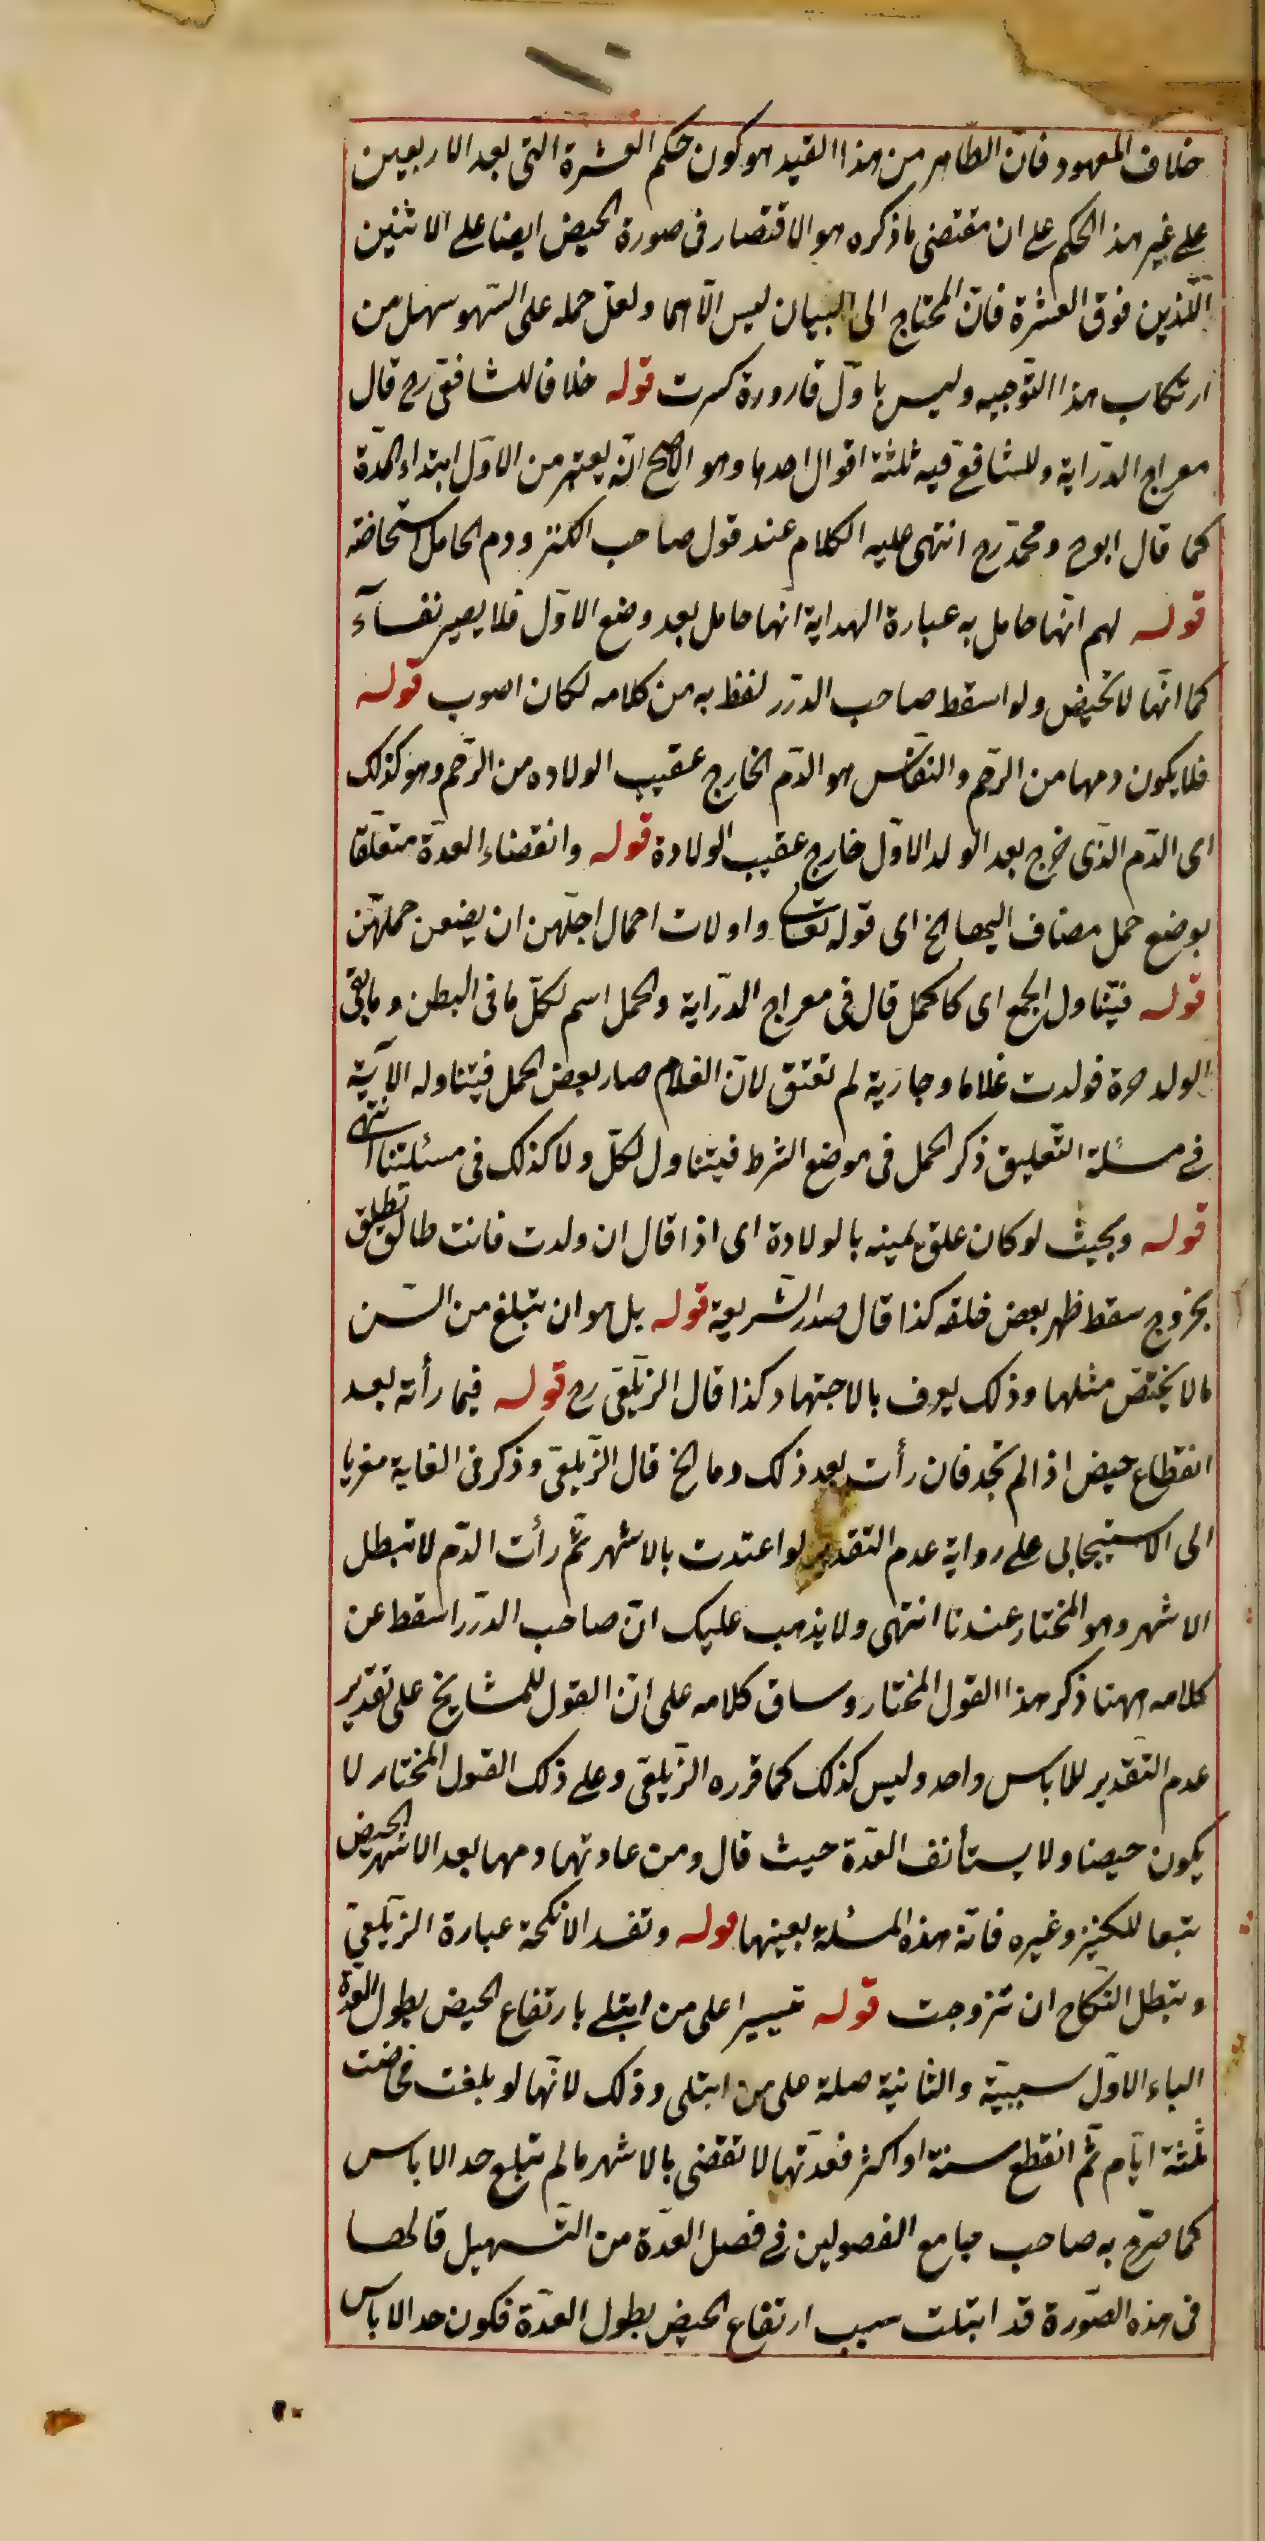 خلاف المعهود فانّ الظاهر من هذا القيد هو كون حكم العشرة التى بعد الاربعين
على غير هذا الحكم على ان مقتضى ما ذكره هو الاقتصار فى صورة الحيض ايضا على الاثنين
اللّذين فوق العشرة فانّ المحتاج الى البيان ليس الّا هما ولعلّ حمله على السّهو سهل من
ارتكاب هذا التّوجيه وليس باوّل قارورة كسرت قوله خلافا للشافعىّ رح قال
معراج الدّراية وللشافعىّ فيه ثلثة اقوال احدها وهو الاصح انّه يعتبر من الاوّل ابتداء المدّة
كما قال ابوح ومحمّد رح انتهى عليه الكلام عند قول صاحب الكنز ودم الحامل استحاضة
قوله لهم انّها حامل به عبارة الهداية انّها حامل بعد وضع الاوّل فلا يصير نفسآء
كما انّها لا تحيض ولو اسقط صاحب الدّرر لفظ به من كلامه لكان اصوب قوله
فلا يكون دمها من الرّحم والنّفاس هو الدّم الخارج عقيب الولاده من الرّحم وهو كذلك
اى الدّم الّذى خرج بعد الولد الاوّل خارج عقيب الولادة قوله وانقضاء العدّة متعلّقا
بوضع حمل مضاف اليها الخ اى قوله تعالى واولات احمال اجلهن ان يضعن حملهنّ
قوله فيتناول الجمع اى كا لحمل قال فى معراج الدّراية والحمل اسم لكلّ ما فى البطن وما بقى
الولد حرة فولدت غلاما وجارية لم تعتق لانّ الغلام صار بعض الحمل فيتناوله الآية
فى مسئلة التّعليق ذكر الحمل فى موضع الشرط فيتناول لكلّ ولا كذلك فى مسئلتنا انتهى
قوله وبحيث لو كان علق يمينه بالولادة اى اذا قال ان ولدت فانت طالق تطلق
بخروج سقط ظهر بعض خلقه كذا قال صدر الشّريعة قوله بل هو ان تبلغ من السّن
ما لا يختصّ مثلها وذلك يعرف بالاجتهاد كذا قال الزّيلعى رح قوله فيما رأته بعد
انقطاع حيض اذا لم تجد فان رأت بعد ذلك دما الخ قال الزّيلعى وذكر فى الغاية معزيا
الى الاسبيجابى على رواية عدم التقدير لو اعتدت بالاشهر ثمّ رأت الدّم لا تبطل
الاشهر وهو المختار عندنا انتهى ولا يذهب عليك انّ صاحب الدّرر اسقط عن
كلامه ههنا ذكر هذا القول المختار وساق كلامه على انّ القول للمشايخ على تقدير
عدم التّقدير للاياس واحد وليس كذلك كما قرره الزّيلعى وعلى ذلك القول المختار لا
يكون حيضا ولا يستأنف العدّة حيث قال ومن عادتها دمها بعد الاشهر الحيض
تبعا للكنز وغيره فانّه هذه المسئلة بعينها قوله وتفسد الانكحة عبارة الزّيلعىّ
وتبطل النّكاح ان تزوجت قوله تيسيرا على من ابتلى بارتفاع الحيض بطول العدّة
الباء الاوّل سببيّة والثانية صلة على من ابتلى وذلك لانّها لو بلغت فحاضت
ثلثة ايّام ثمّ انقطع سنة او اكثر فعدّتها لا تقضى بالاشهر ما لم تبلغ حد الاياس
كما صرّح به صاحب جامع الفصولين فى فصل العدّة من التّسهيل قالها
فى هذه الصّورة قد ابتلت سبب ارتفاع الحيض بطول العدّة فكون حد الاياس